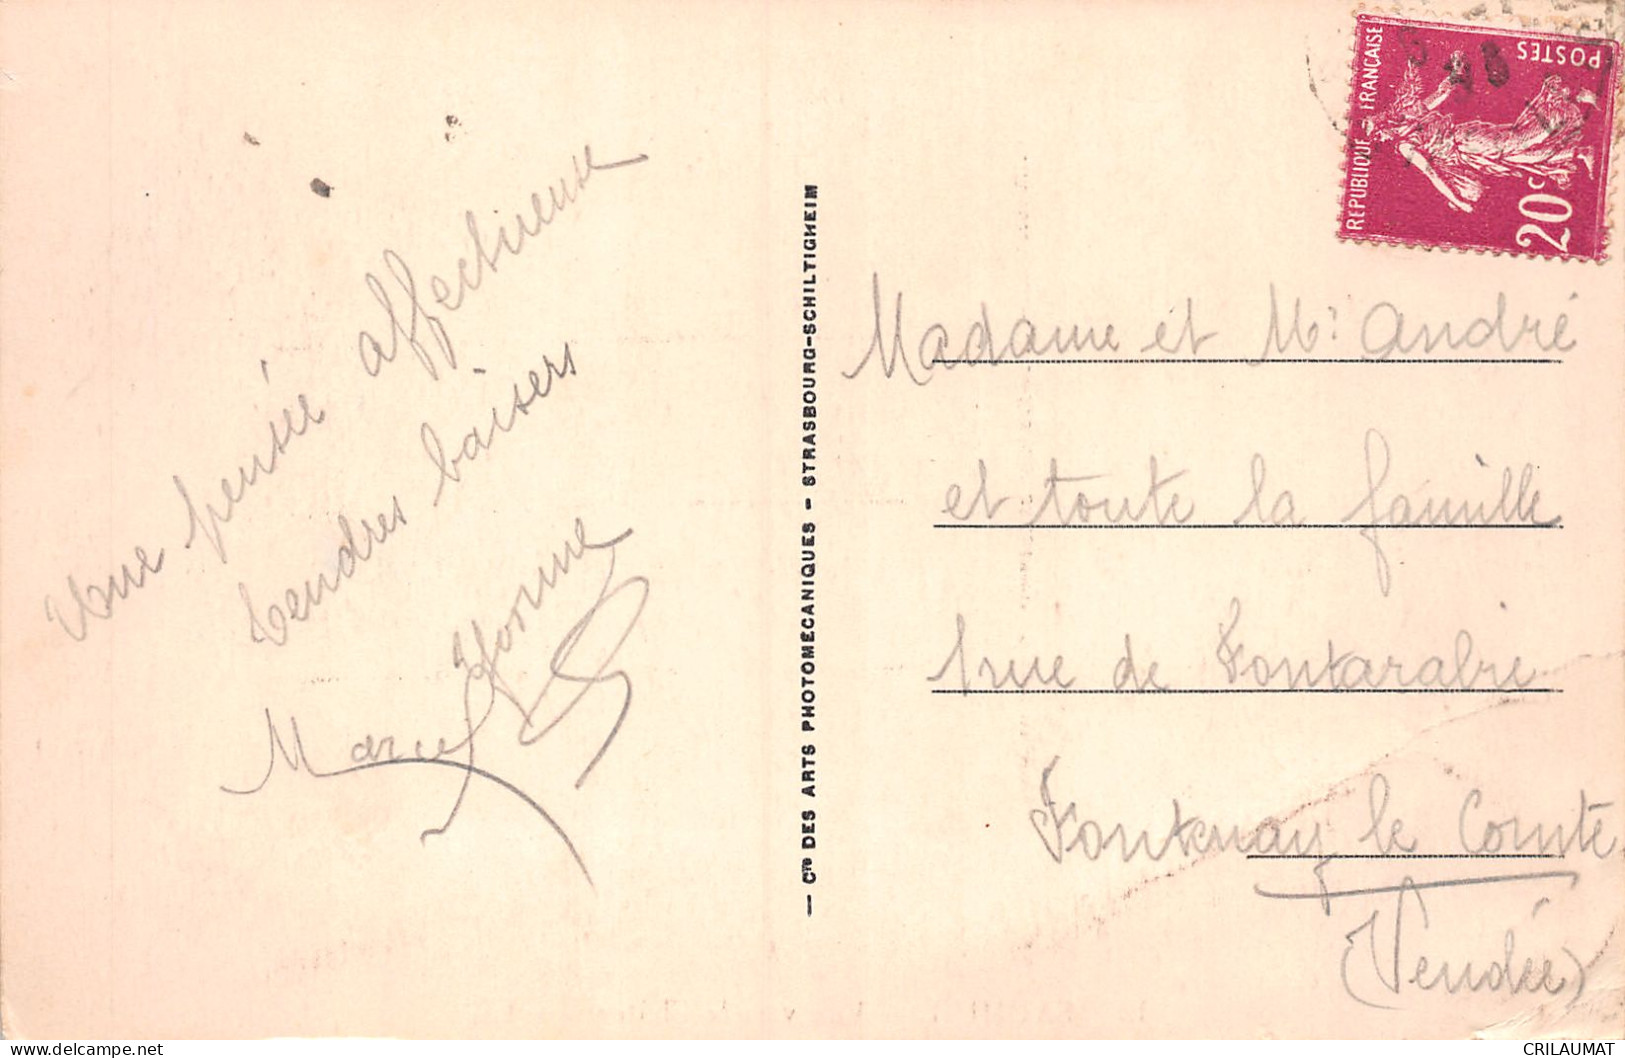 Une pensée affectueuse
tendres baisers
Yvonne
Marcel
— Cie DES ARTS PHOTOMÉCANIQUES — STRASBOURG-SCHILTIGHEIM
REPUBLIQUE - FRANÇAISE
POSTES
20c
Madame et Mr André
et toute la famille
1 rue de Fontarabie
Fontenay le Comte
(Vendée)
CRILAUMAT